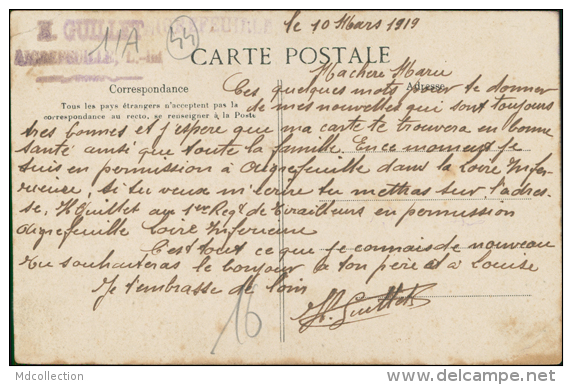 le 10 Mars 1919
H. GUILLET
AIGREFEUILLE, L.-Inf
11/A
44
CARTE POSTALE
Correspondance
Adresse
Tous les pays étrangers n'acceptent pas la
correspondance au recto, se renseigner à la Poste
Ma chere Marie
Ces quelques mots pour te donner
de mes nouvelles qui sont toujours
tres bonnes et j'espere que ma carte te trouvera en bonne
santé ainsi que toute la famille. En ce moment je
suis en permission à Aigrefeuille dans la Loire Infer-
rieure, si tu veux m'ecrire tu mettras sur l'adres-
se, H Guillet au 1er Regt de Tirailleurs en permission
Aigrefeuille Loire Inferieure
C'est tout ce que je connais de nouveau
tu souhaiteras le bonjour a ton père et a Louise
Je t'embrasse de loin
H. Guillet
16
Mdcollection
www.delcampe.net